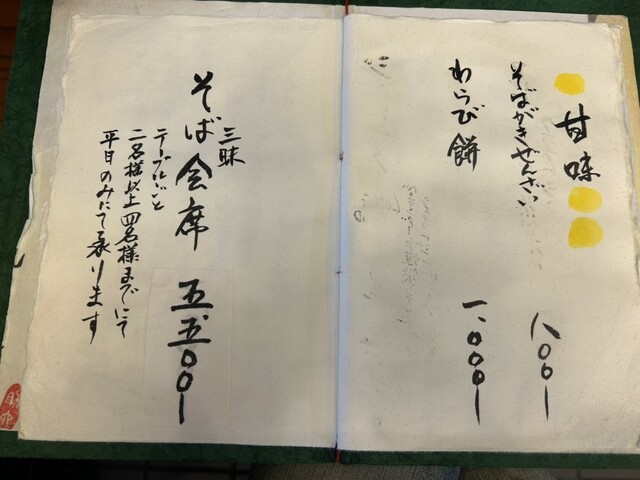 甘味
そばがきぜんざい 八〇〇ー
わらび餅 一、〇〇〇ー
三昧
そば会席 五五〇〇ー
テーブルごと
二名様以上四名様までにて
平日のみにて承ります